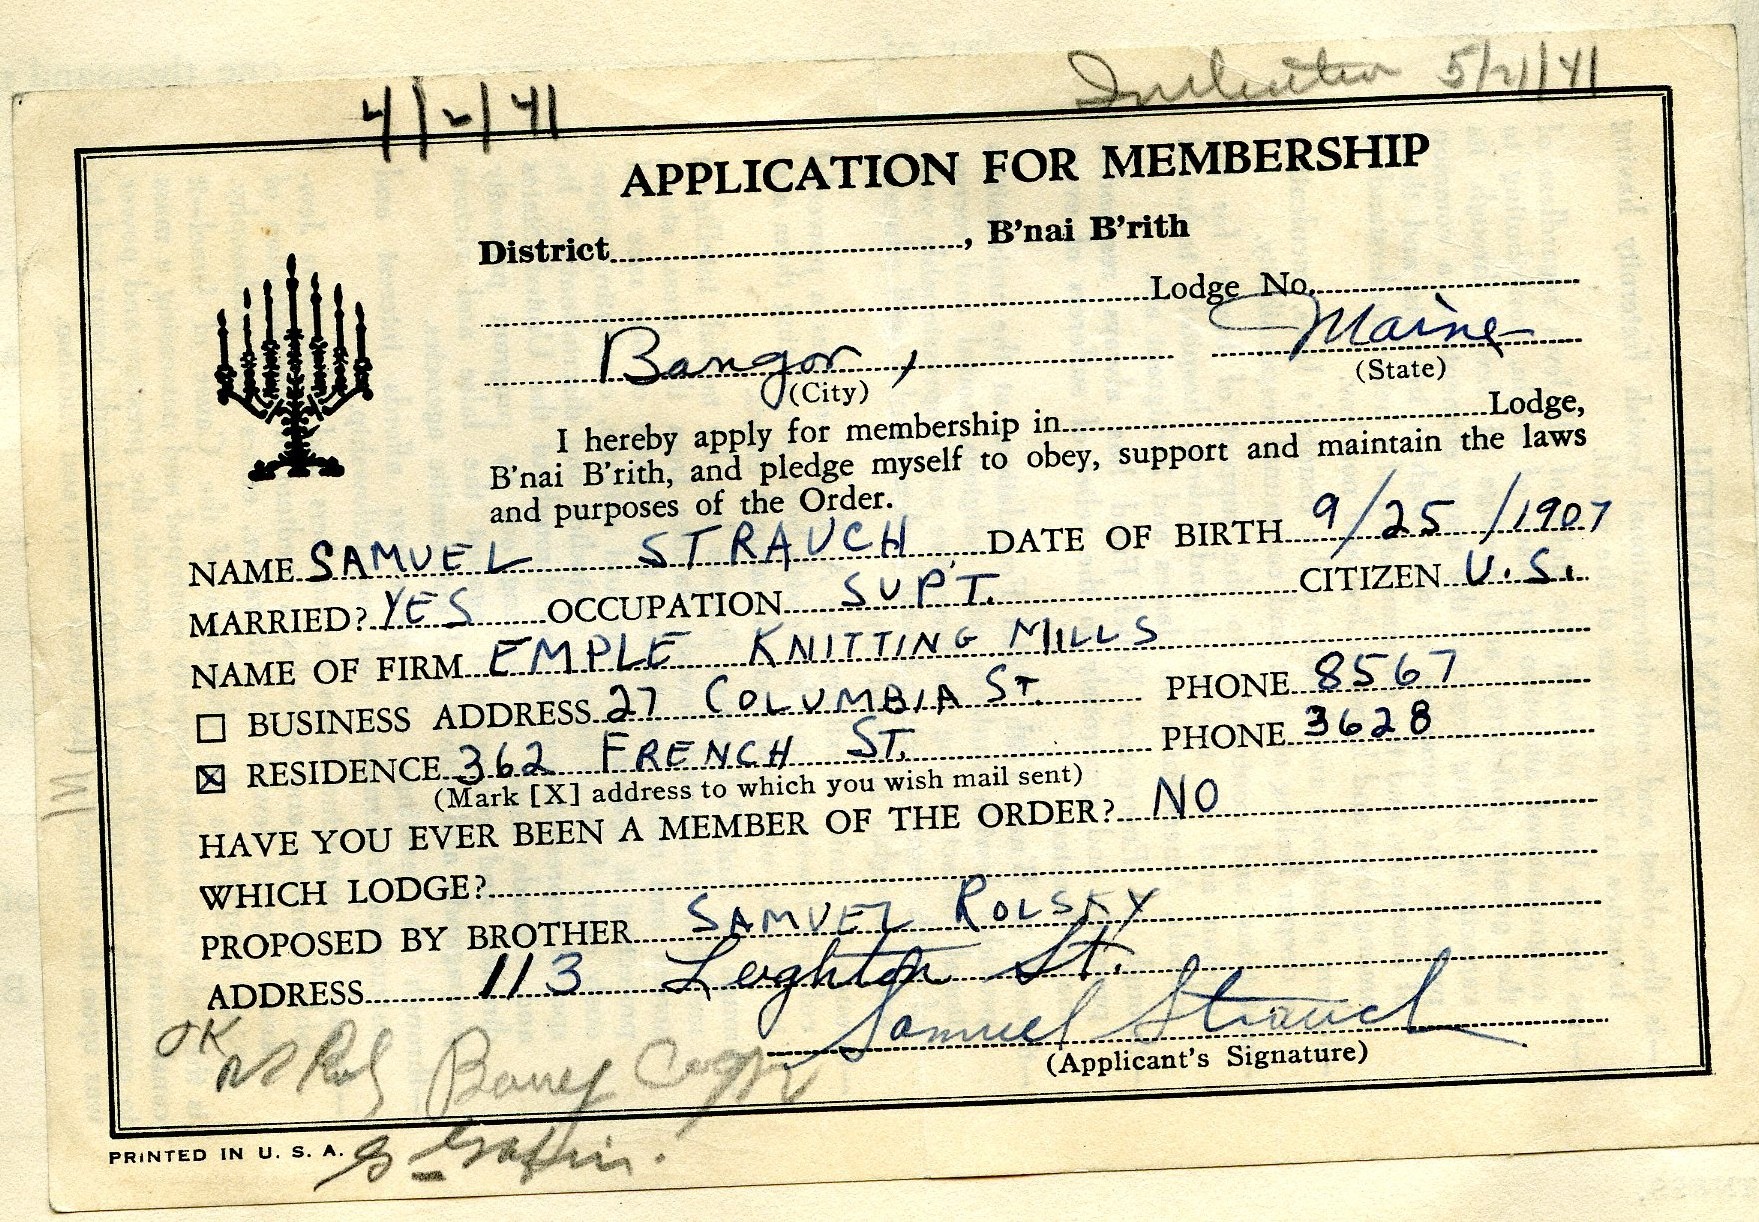 4/2/41
5/21/41
APPLICATION FOR MEMBERSHIP
District, B'nai B'rith
Lodge No.
Bangor, Maine
(City) (State)
I hereby apply for membership in Lodge,
B'nai B'rith, and pledge myself to obey, support and maintain the laws
and purposes of the Order.
NAME SAMUEL STRAUCH DATE OF BIRTH 9/25/1907
MARRIED? YES OCCUPATION SUP'T. CITIZEN U.S.
NAME OF FIRM EMPLE KNITTING MILLS
BUSINESS ADDRESS 27 COLUMBIA ST. PHONE 8567
☒ RESIDENCE 362 FRENCH ST. PHONE 3628
(Mark [X] address to which you wish mail sent)
HAVE YOU EVER BEEN A MEMBER OF THE ORDER? NO
WHICH LODGE?
PROPOSED BY BROTHER SAMUEL ROLSKY
ADDRESS 113 Leighton St.
Samuel Strauch
(Applicant's Signature)
OK
PRINTED IN U. S. A.